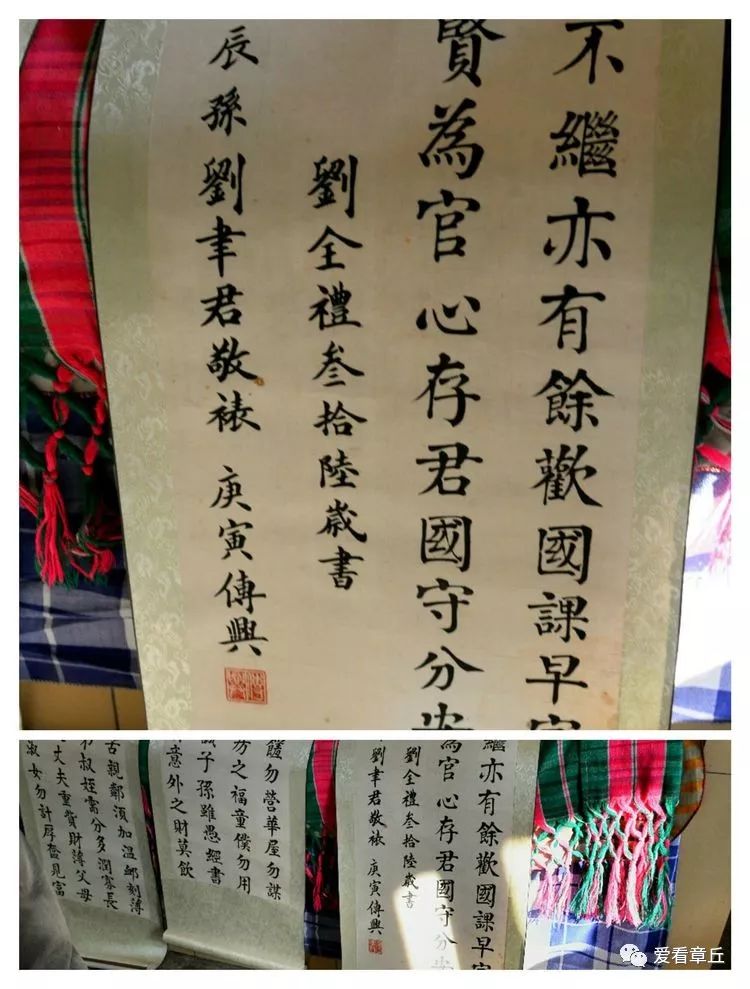 不繼亦有餘歡國課早
賢為官心存君國守分
劉全禮叁拾陸歲書
辰孫劉聿君敬裱 庚寅傳興
繼亦有餘歡國課早
為官心存君國守分
劉全禮叁拾陸歲書
劉聿君敬裱 庚寅傳興
饈勿營華屋勿謀
房之福童僕勿用
誠子孫雖愚經書
意外之財莫飲
苦親鄰須加溫卹刻薄
叔姪需分多潤寡長
丈夫重貲財薄父母
淑女勿計厚奩見富
爱看章丘